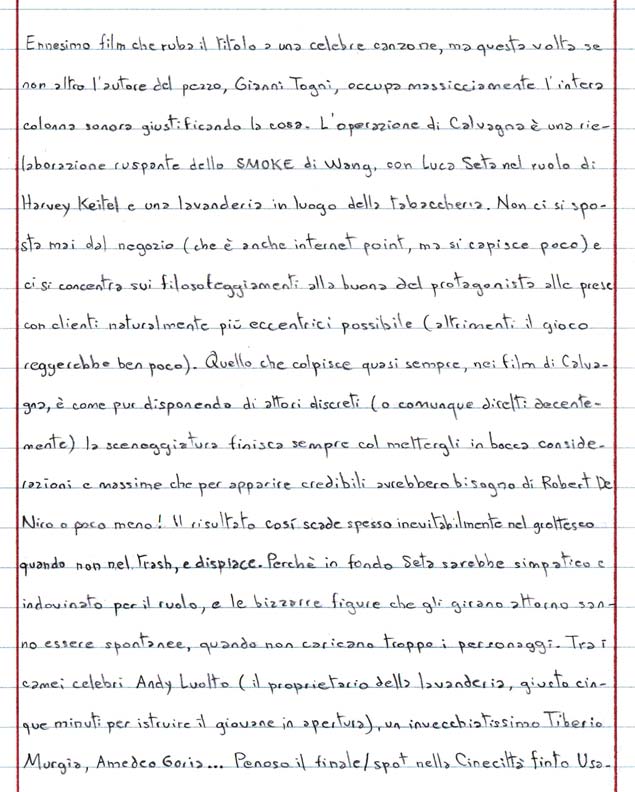 Ennesimo film che ruba il titolo a una celebre canzone, ma questa volta se
non altro l'autore del pezzo, Gianni Togni, occupa massicciamente l'intera
colonna sonora giustificando la cosa. L'operazione di Calvagna è una rie-
laborazione ruspante dello SMOKE di Wang, con Luca Seta nel ruolo di
Harvey Keitel e una lavanderia in luogo della tabaccheria. Non ci si spo-
sta mai dal negozio (che è anche internet point, ma si capisce poco) e
ci si concentra sui filosofeggiamenti alla buona del protagonista alle prese
con clienti naturalmente più eccentrici possibile (altrimenti il gioco
reggerebbe ben poco). Quello che colpisce quasi sempre, nei film di Calva-
gna, è come pur disponendo di attori discreti (o comunque diretti decente-
mente) la sceneggiatura finisca sempre col mettergli in bocca conside-
razioni e massime che per apparire credibili avrebbero bisogno di Robert De
Niro o poco meno! Il risultato così scade spesso inevitabilmente nel grottesco
quando non nel trash, e dispiace. Perchè in fondo Seta sarebbe simpatico e
indovinato per il ruolo, e le bizzarre figure che gli girano attorno san-
no essere spontanee, quando non caricano troppo i personaggi. Tra i
camei celebri Andy Luotto (il proprietario della lavanderia, giusto cin-
que minuti per istruire il giovane in apertura), un invecchiatissimo Tiberio
Murgia, Amedeo Goria... Penoso il finale/spot nella Cinecittà finto Usa.